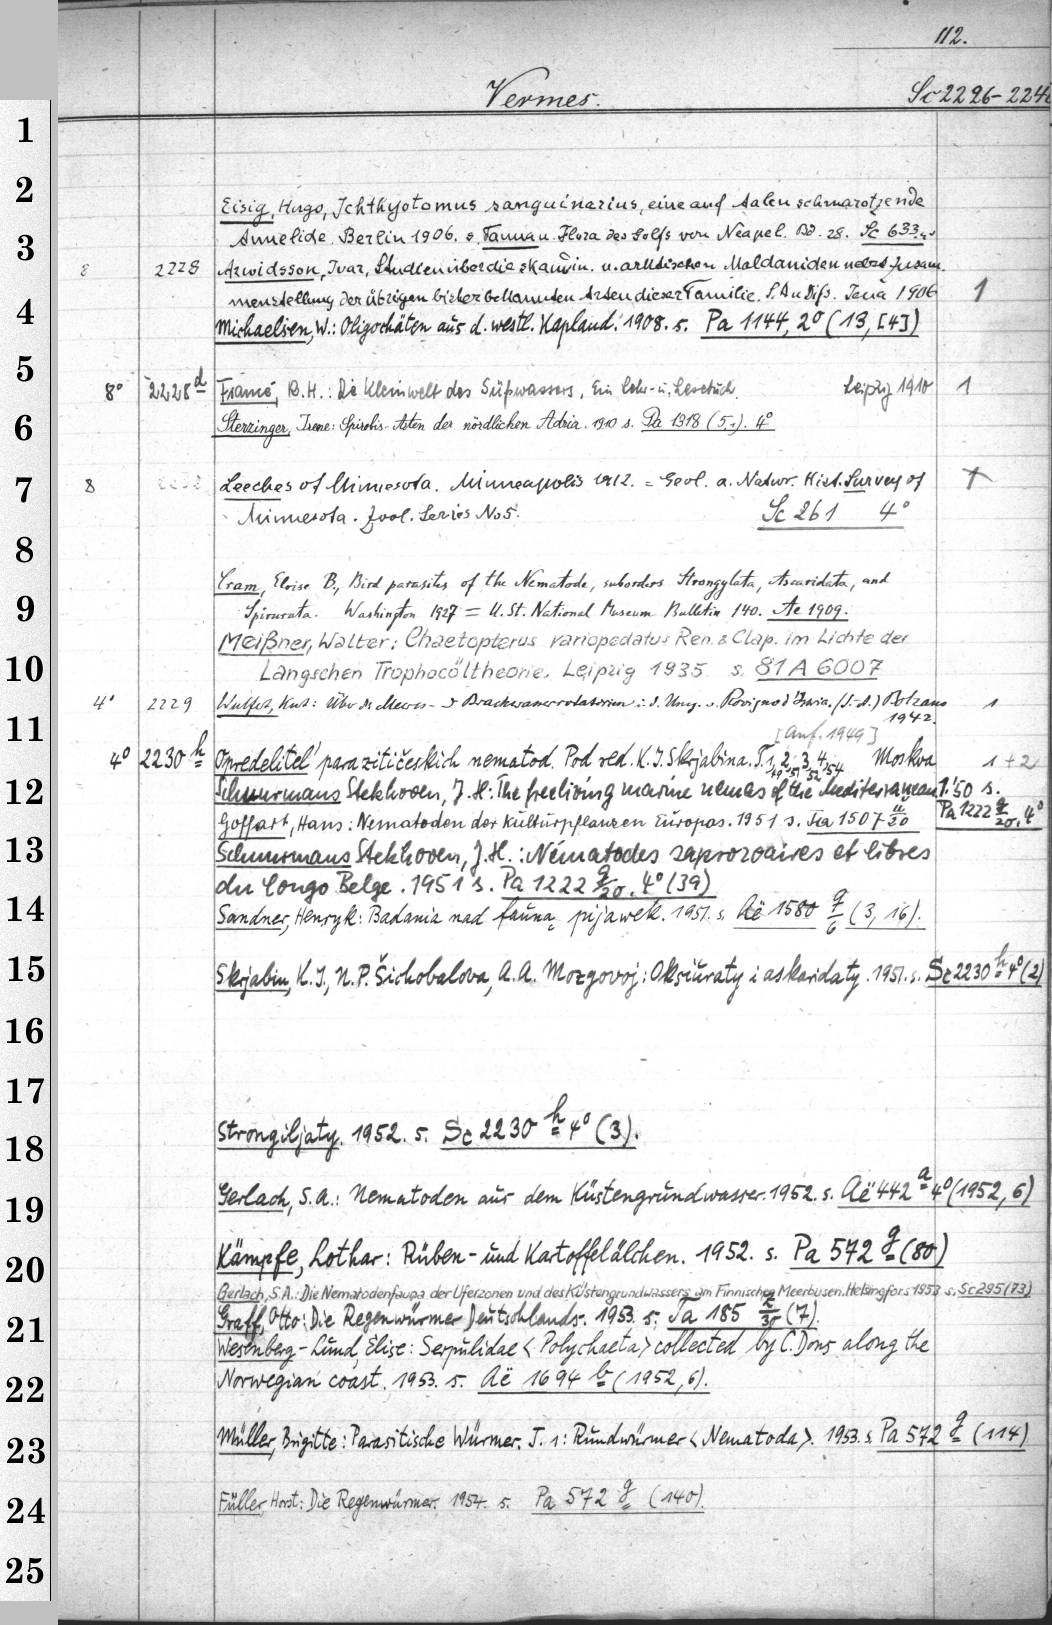 112.
Vermes.
Sc 2226-224
1
2
Eisig, Hugo, Ichthyotomus sanguinarius, eine auf Aalen schmarotzende
3
Annelide. Berlin 1906. s. Fauna u. Flora des Golfs von Neapel. Bd. 28. Sc 633
8 2228 Arwidsson, Ivar, Studien über die skandin. u. arktischen Maldaniden nebst Zusam
menstellung der übrigen bisher bekannten Arten dieser Familie. I. Au Diss. Jena 1906 1
4
Michaelsen, W.: Oligochäten aus d. westl. Kapland. 1908. s. Pa 1144, 2° (13,[4])
5
8° 2228 d Francé, R.H.: Die Kleinwelt des Süßwassers, Ein Lehr- u. Lesebuch. Leipzig 1910 1
6
Sterzinger, Irene: Spirorbis-Arten der nördlichen Adria. 1910 s. Pa 1318 (5,1). 4°
7
8 Leeches of Minnesota. Minneapolis 1912. = Geol. a. Natur. Hist. Survey of
Minnesota. Zool. Series No 5. Sc 261 4°
8
Cram, Eloise B., Bird parasites of the Nematode, suborders Strongylata, Ascaridata, and
9
Spirurata. Washington 1927 = U. St. National Museum Bulletin 140. Ae 1909.
Meißner, Walter: Chaetopterus variopedatus Ren. & Clap. im Lichte der
10
Langschen Trophocöltheorie. Leipzig 1935 s. 81 A 6007
4° 2229 Wulfert, Kurt: Über die Meeres- u Brackwasserrotatorien i. d. Umg. v. Rovigno d'Istria. Bolzano 1
1942.
11
[Anf. 1949]
4° 2230 h Opredelitel' parazitičeskich nematod. Pod red. K. I. Skrjabina. T. 1, 2, 3, 4. Moskva 1+2
49 51 52 54
12
Schuurmans Stekhoven, J. H.: The freeliving marine nemas of the Mediterranean. 1.'50 s.
Pa 1222 g/20. 4°
Goffart, Hans: Nematoden der Kulturpflanzen Europas. 1951 s.
13
Schuurmans Stekhoven, J.H.: Nématodes saprozoaires et libres
du Congo Belge. 1951 s. Pa 1222 g/20. 4° (39)
14
Sandner, Henryk: Badania nad fauną pijawek. 1951. s. Aë 1580 g/6 (3, 16).
15
Skrjabin, K. I., N. P. Šichobalova, A. A. Mozgovoj: Oksiuraty i askaridaty. 1951. s. Sc 2230 h 4° (2)
16
17
18
Strongiljaty. 1952. s. Sc 2230 h 4° (3).
19
Gerlach, S. A.: Nematoden aus dem Küstengrundwasser. 1952. s. Aë 442 a 4° (1952, 6)
20
Kämpfe, Lothar: Rüben- und Kartoffelälchen. 1952. s. Pa 572 g (80)
Gerlach, S. A.: Die Nematodenfauna der Uferzonen und des Küstengrundwassers am Finnischen Meerbusen. Helsingfors 1953 s. Sc 295 (73)
21
Graff, Otto: Die Regenwürmer Deutschlands. 1953. s. Ta 185 (7).
Wesenberg-Lund, Elise: Serpulidae <Polychaeta> collected by C. Dons along the
22
Norwegian coast. 1953. s. Aë 1694 b (1952, 6).
23
Müller, Brigitte: Parasitische Würmer. T. 1: Rundwürmer <Nematoda>. 1953. s. Pa 572 g (114)
24
Füller, Horst: Die Regenwürmer. 1954. s. Pa 572 g (140).
25